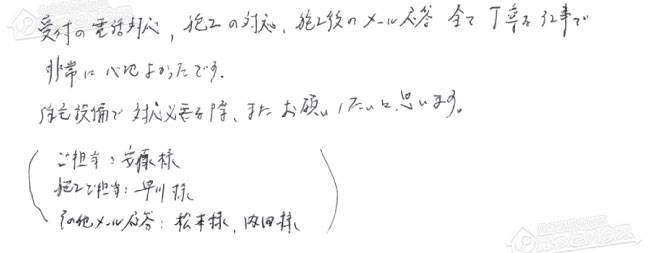 受付の電話対応、施工の対応、施工後のメール応答 全て丁寧な仕事で
非常に心地よかったです。
住宅設備で対応必要な際、またお願いしたいと思います。
ご担当:安藤様
施工ご担当:早川様
その他メール応答:松本様、内田様